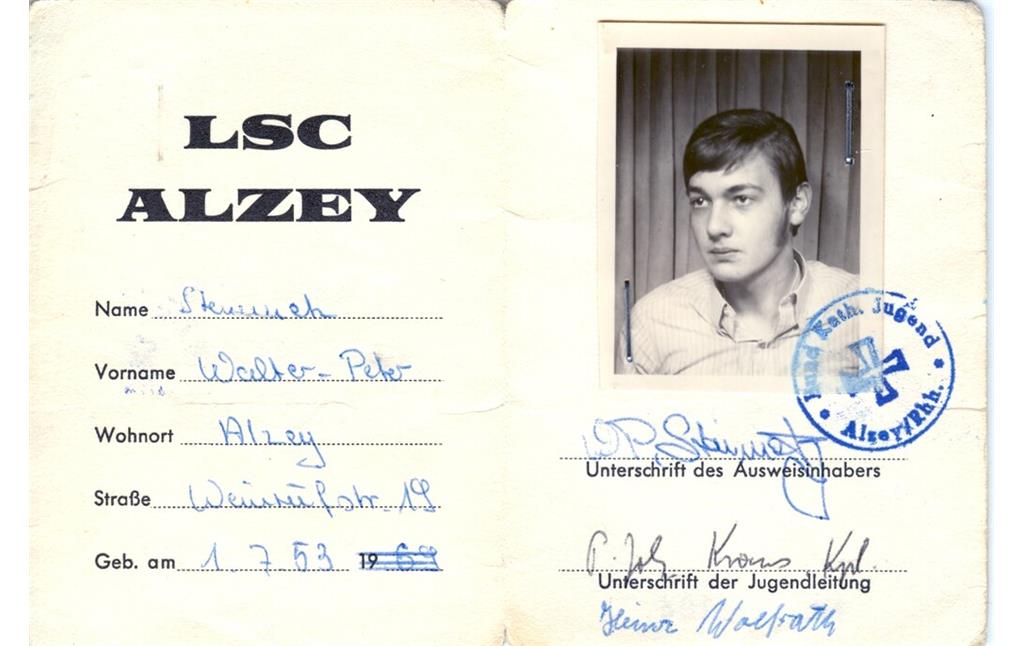 LSC
ALZEY
Name Steinmetz
Vorname Walter-Peter
Wohnort Alzey
Straße 19
Geb. am 1. 7 53 19 69
Bund Kath. Jugend
Alzey/Rhh.
W P. Steinmetz
Unterschrift des Ausweisinhabers
P. Joh. Kraus Kpl.
Unterschrift der Jugendleitung
Heinz Wolfrath